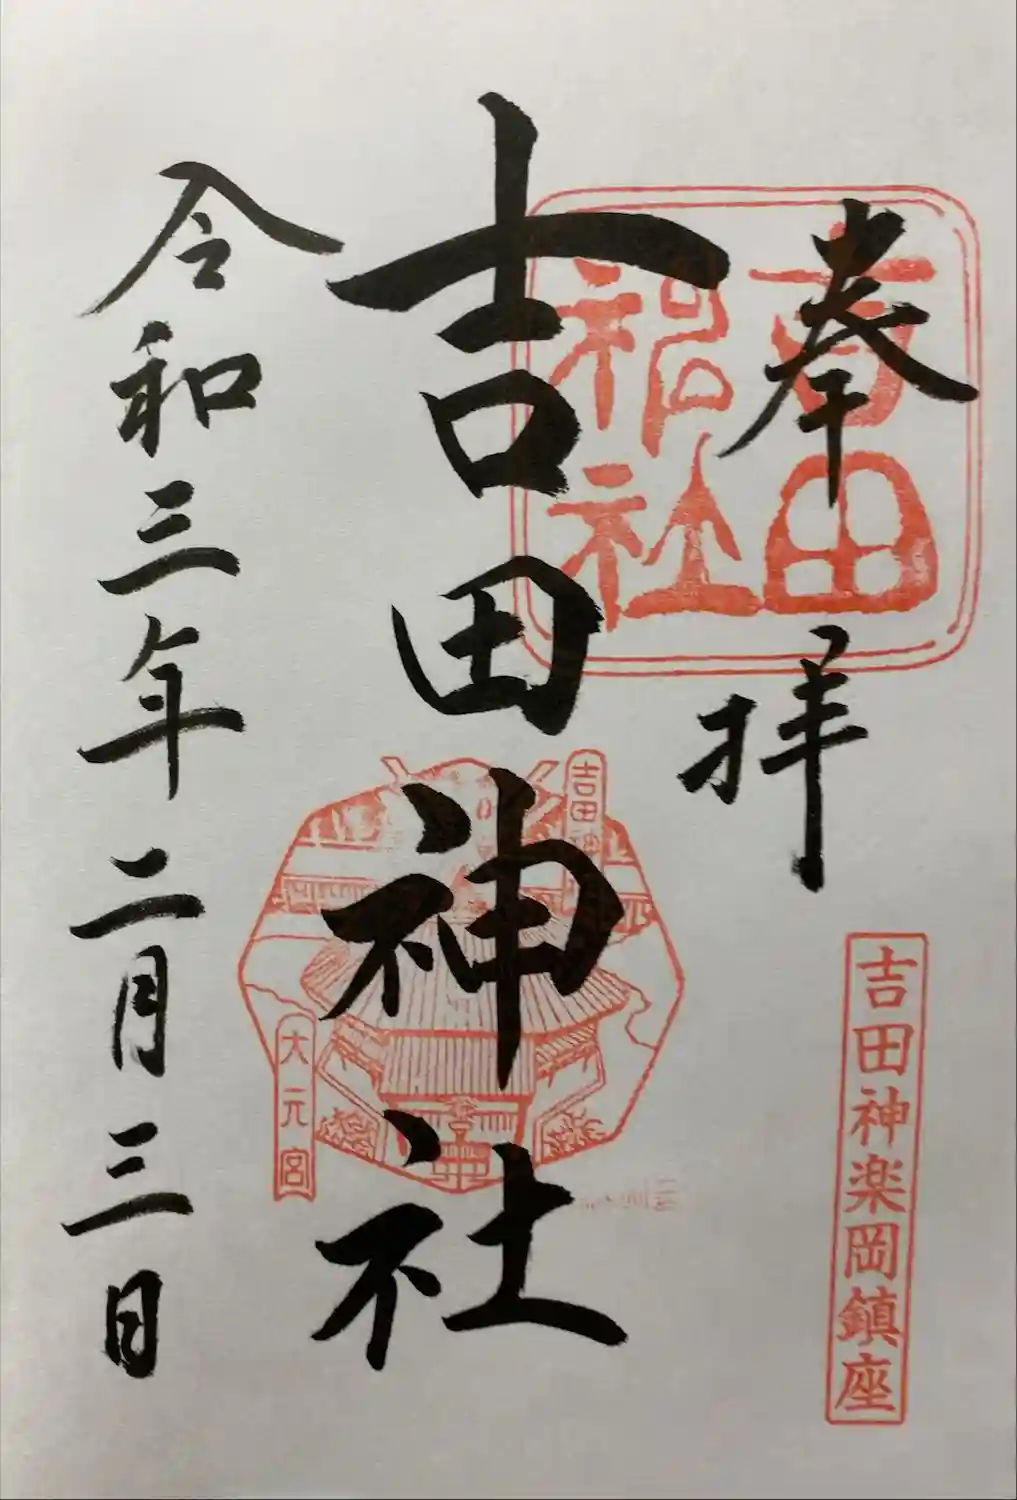 奉拝
吉田神社
吉田神楽岡鎮座
吉田神社
吉田神
大元宮
令和三年二月三日